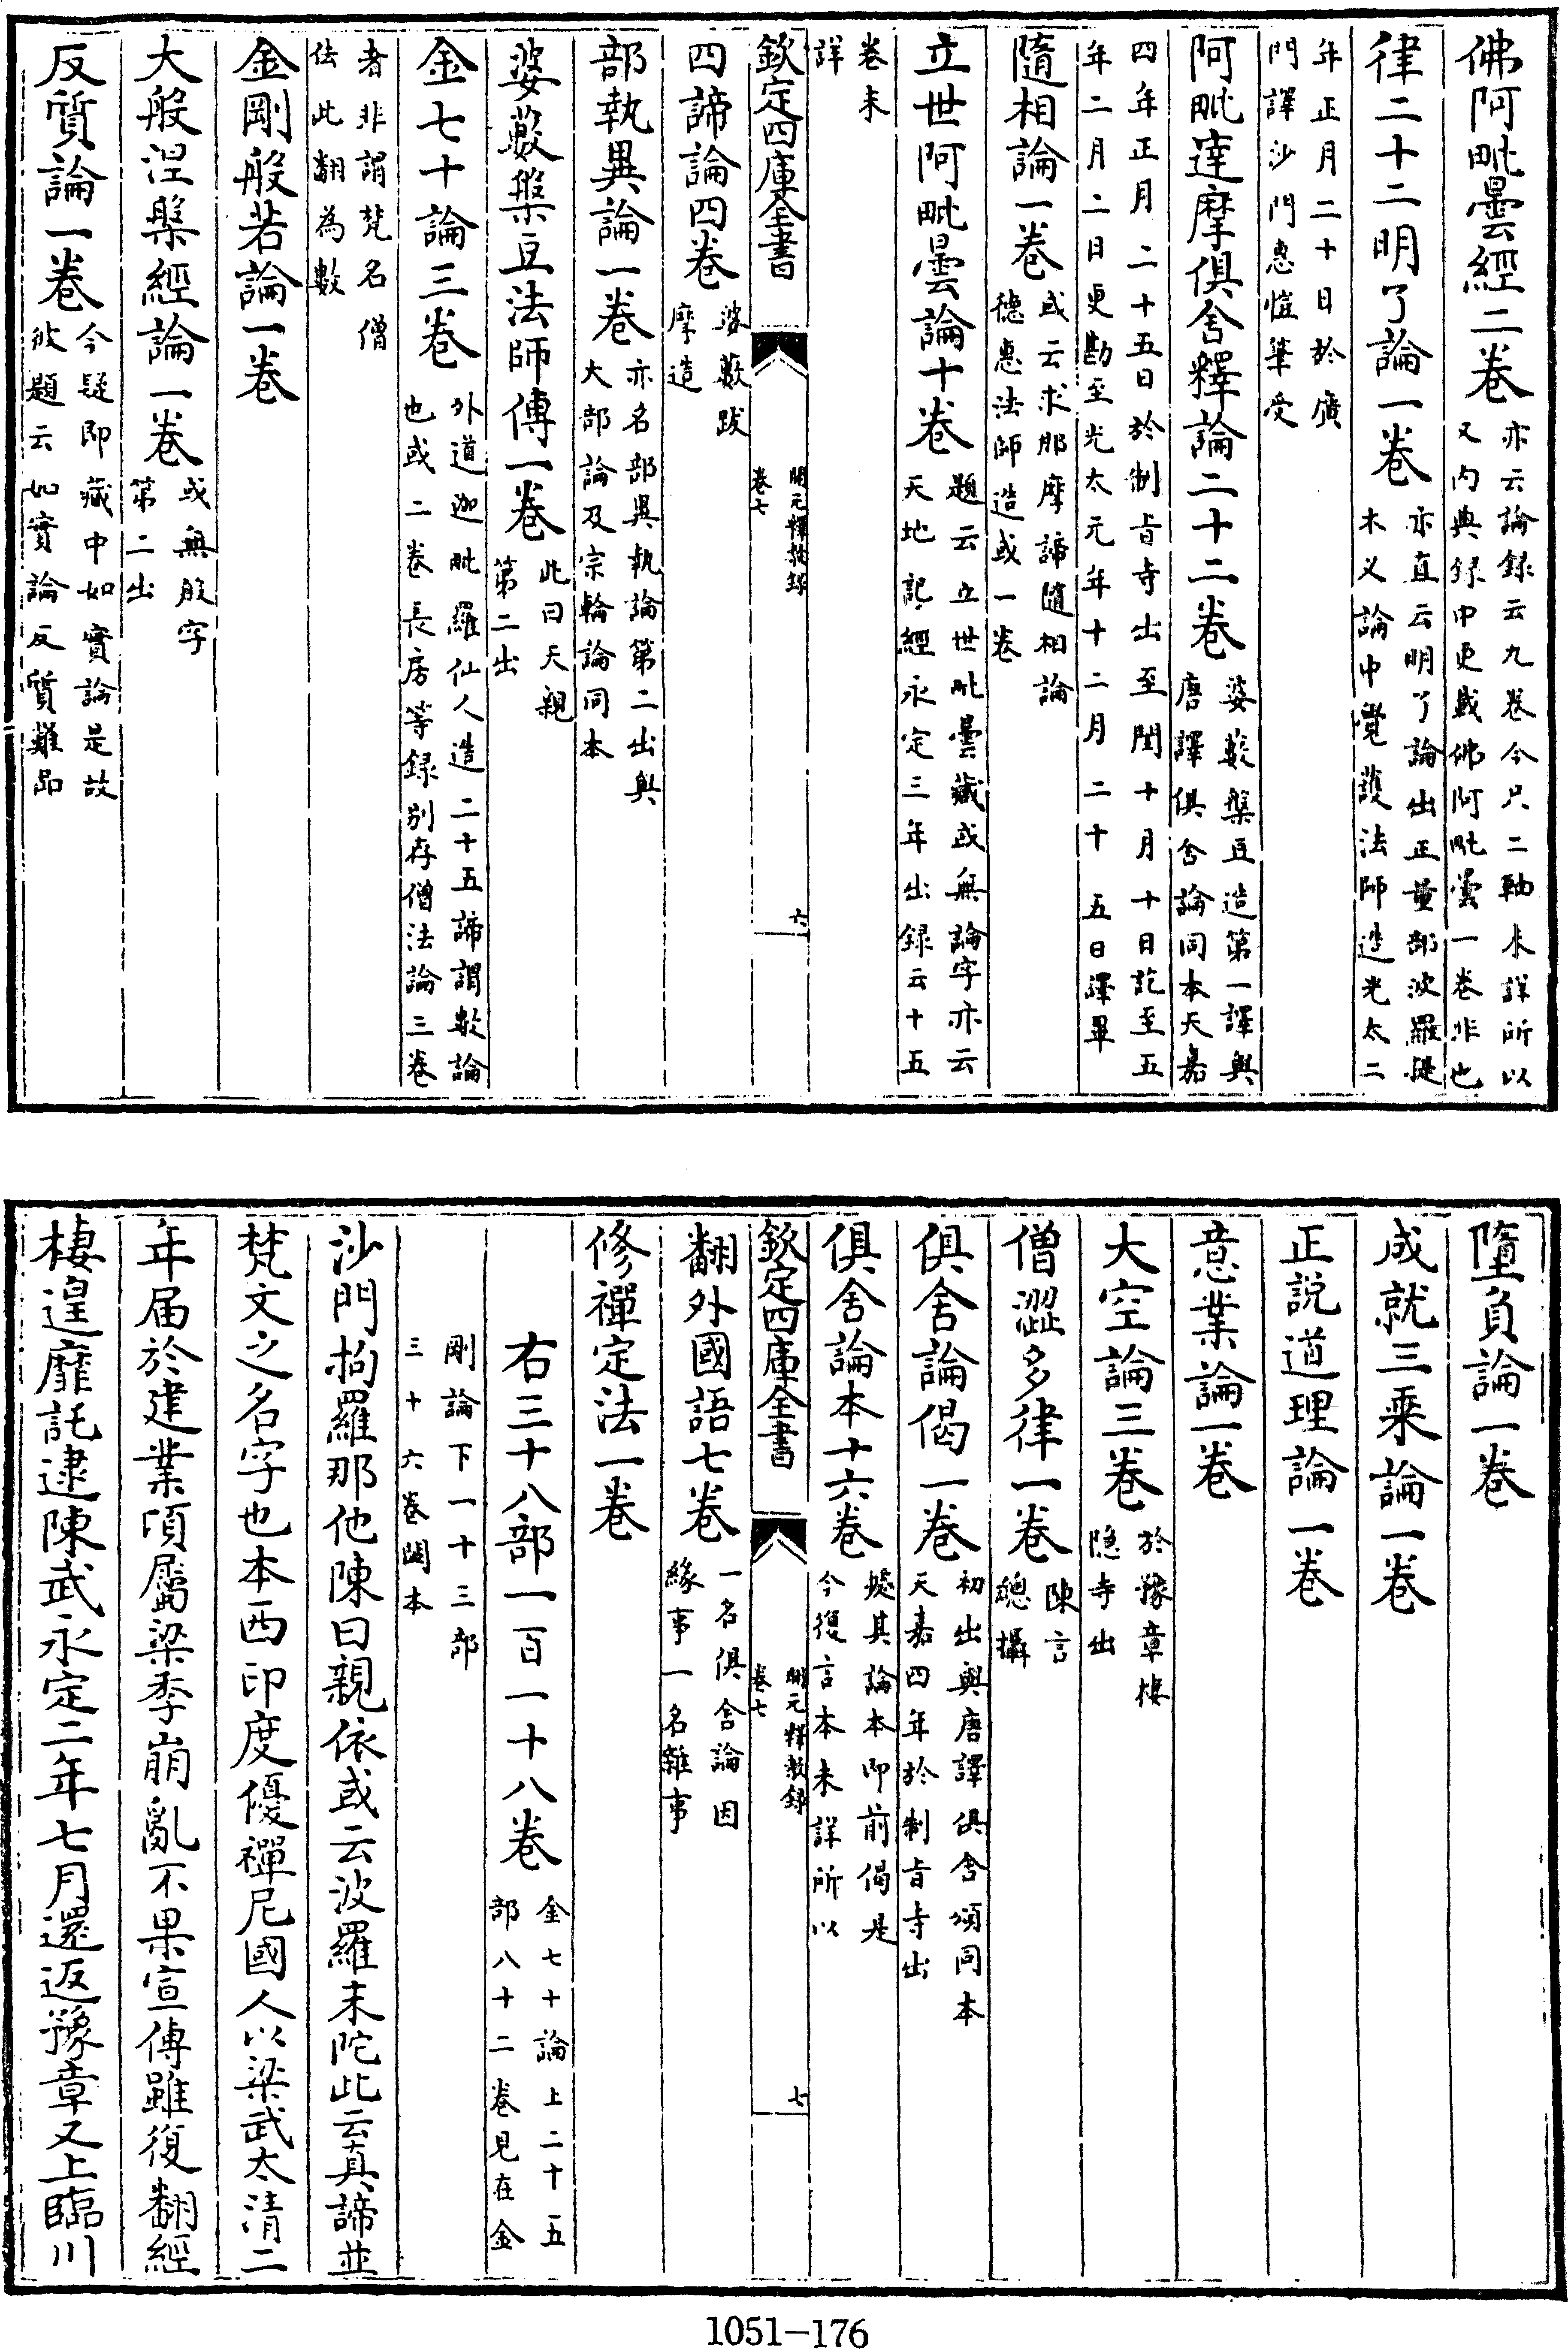 佛阿毗曇經二卷亦云論錄云九卷今只二軸未詳所以又内典録中更載佛阿毗曇一卷非也
律二十二明了論一卷亦直云明了論出正量部波羅提木义論中覺護法師造光太二
年正月二十日於廣門譯沙門惠愷筆受
阿毗達摩俱舍釋論二十二卷婆藪槃豆造第一譯與唐譯俱舍論同本天嘉
四年正月二十五日於制旨寺出至閏十月十日訖至五年二月二日更勘至光太元年十二月二十五日譯畢
隨相論一卷或云求那摩諦隨相論德惠法師造或一卷
立世阿毗曇論十卷題云立世毗曇藏或無論字亦云天地記經永定三年出録云十五
卷未詳
欽定四庫全書
開元釋教録
卷七
六
四諦論四卷婆藪跋摩造
部執異論一卷亦名部異執論第二出與大部論及宗輪論同本
婆藪槃豆法師傳一卷此曰天親第二出
金七十論三卷外道迦毗羅仙人造二十五諦謂數論也或二卷長房等録別存僧法論三卷
者非謂梵名僧佉此翻為數
金剛般若論一卷
大般涅槃經論一卷或無般字第二出
反質論一卷今疑即藏中如實論是故彼題云如實論反質難品
墮負論一卷
成就三乘論一卷
正説道理論一卷
意業論一卷
大空論三卷於豫章棲隱寺出
僧澀多律一卷陳言總攝
俱舍論偈一卷初出與唐譯俱舍頌同本天嘉四年於制旨寺出
俱舍論本十六卷據其論本即前偈是今復言本未詳所以
欽定四庫全書
開元釋教録
卷七
七
翻外國語七卷一名俱舍論因緣事一名雜事
修禪定法一卷
右三十八部一百一十八卷金七十論上二十五部八十二卷見在金
剛論下一十三部三十六卷闕本
沙門拘羅那他陳曰親依或云波羅末陀此云真諦並
梵文之名字也本西印度優禪尼國人以梁武太清二
年届於建業項屬梁季崩亂不果宣傳雖復翻經
棲遑靡託逮陳武永定二年七月還返豫章又上臨川
1051-176